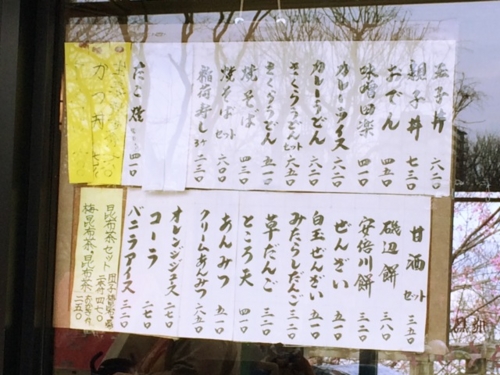 玉子丼 六二〇
親子丼 七三〇
おでん 五一〇
味噌田楽 四一〇
カレーライス 六二〇
カレーうどん 六二〇
きくうどんセット 六五〇
きくうどん 五一〇
焼そば 四一〇
焼そばセット 六〇〇
稲荷寿し 3ヶ 二三〇
たこ焼 四一〇
かつ丼
甘酒セット 三五〇
磯辺餅 三八〇
安倍川餅 三二〇
ぜんざい 五一〇
白玉ぜんざい 五一〇
みたらしだんご 三二〇
草だんご 三二〇
ところ天 四一〇
あんみつ 五一〇
クリームあんみつ 六五〇
オレンジジュース 二七〇
コーラ 二七〇
バニラアイス 三二〇
昆布茶セット 四七〇
梅昆布茶 昆布茶 二五〇